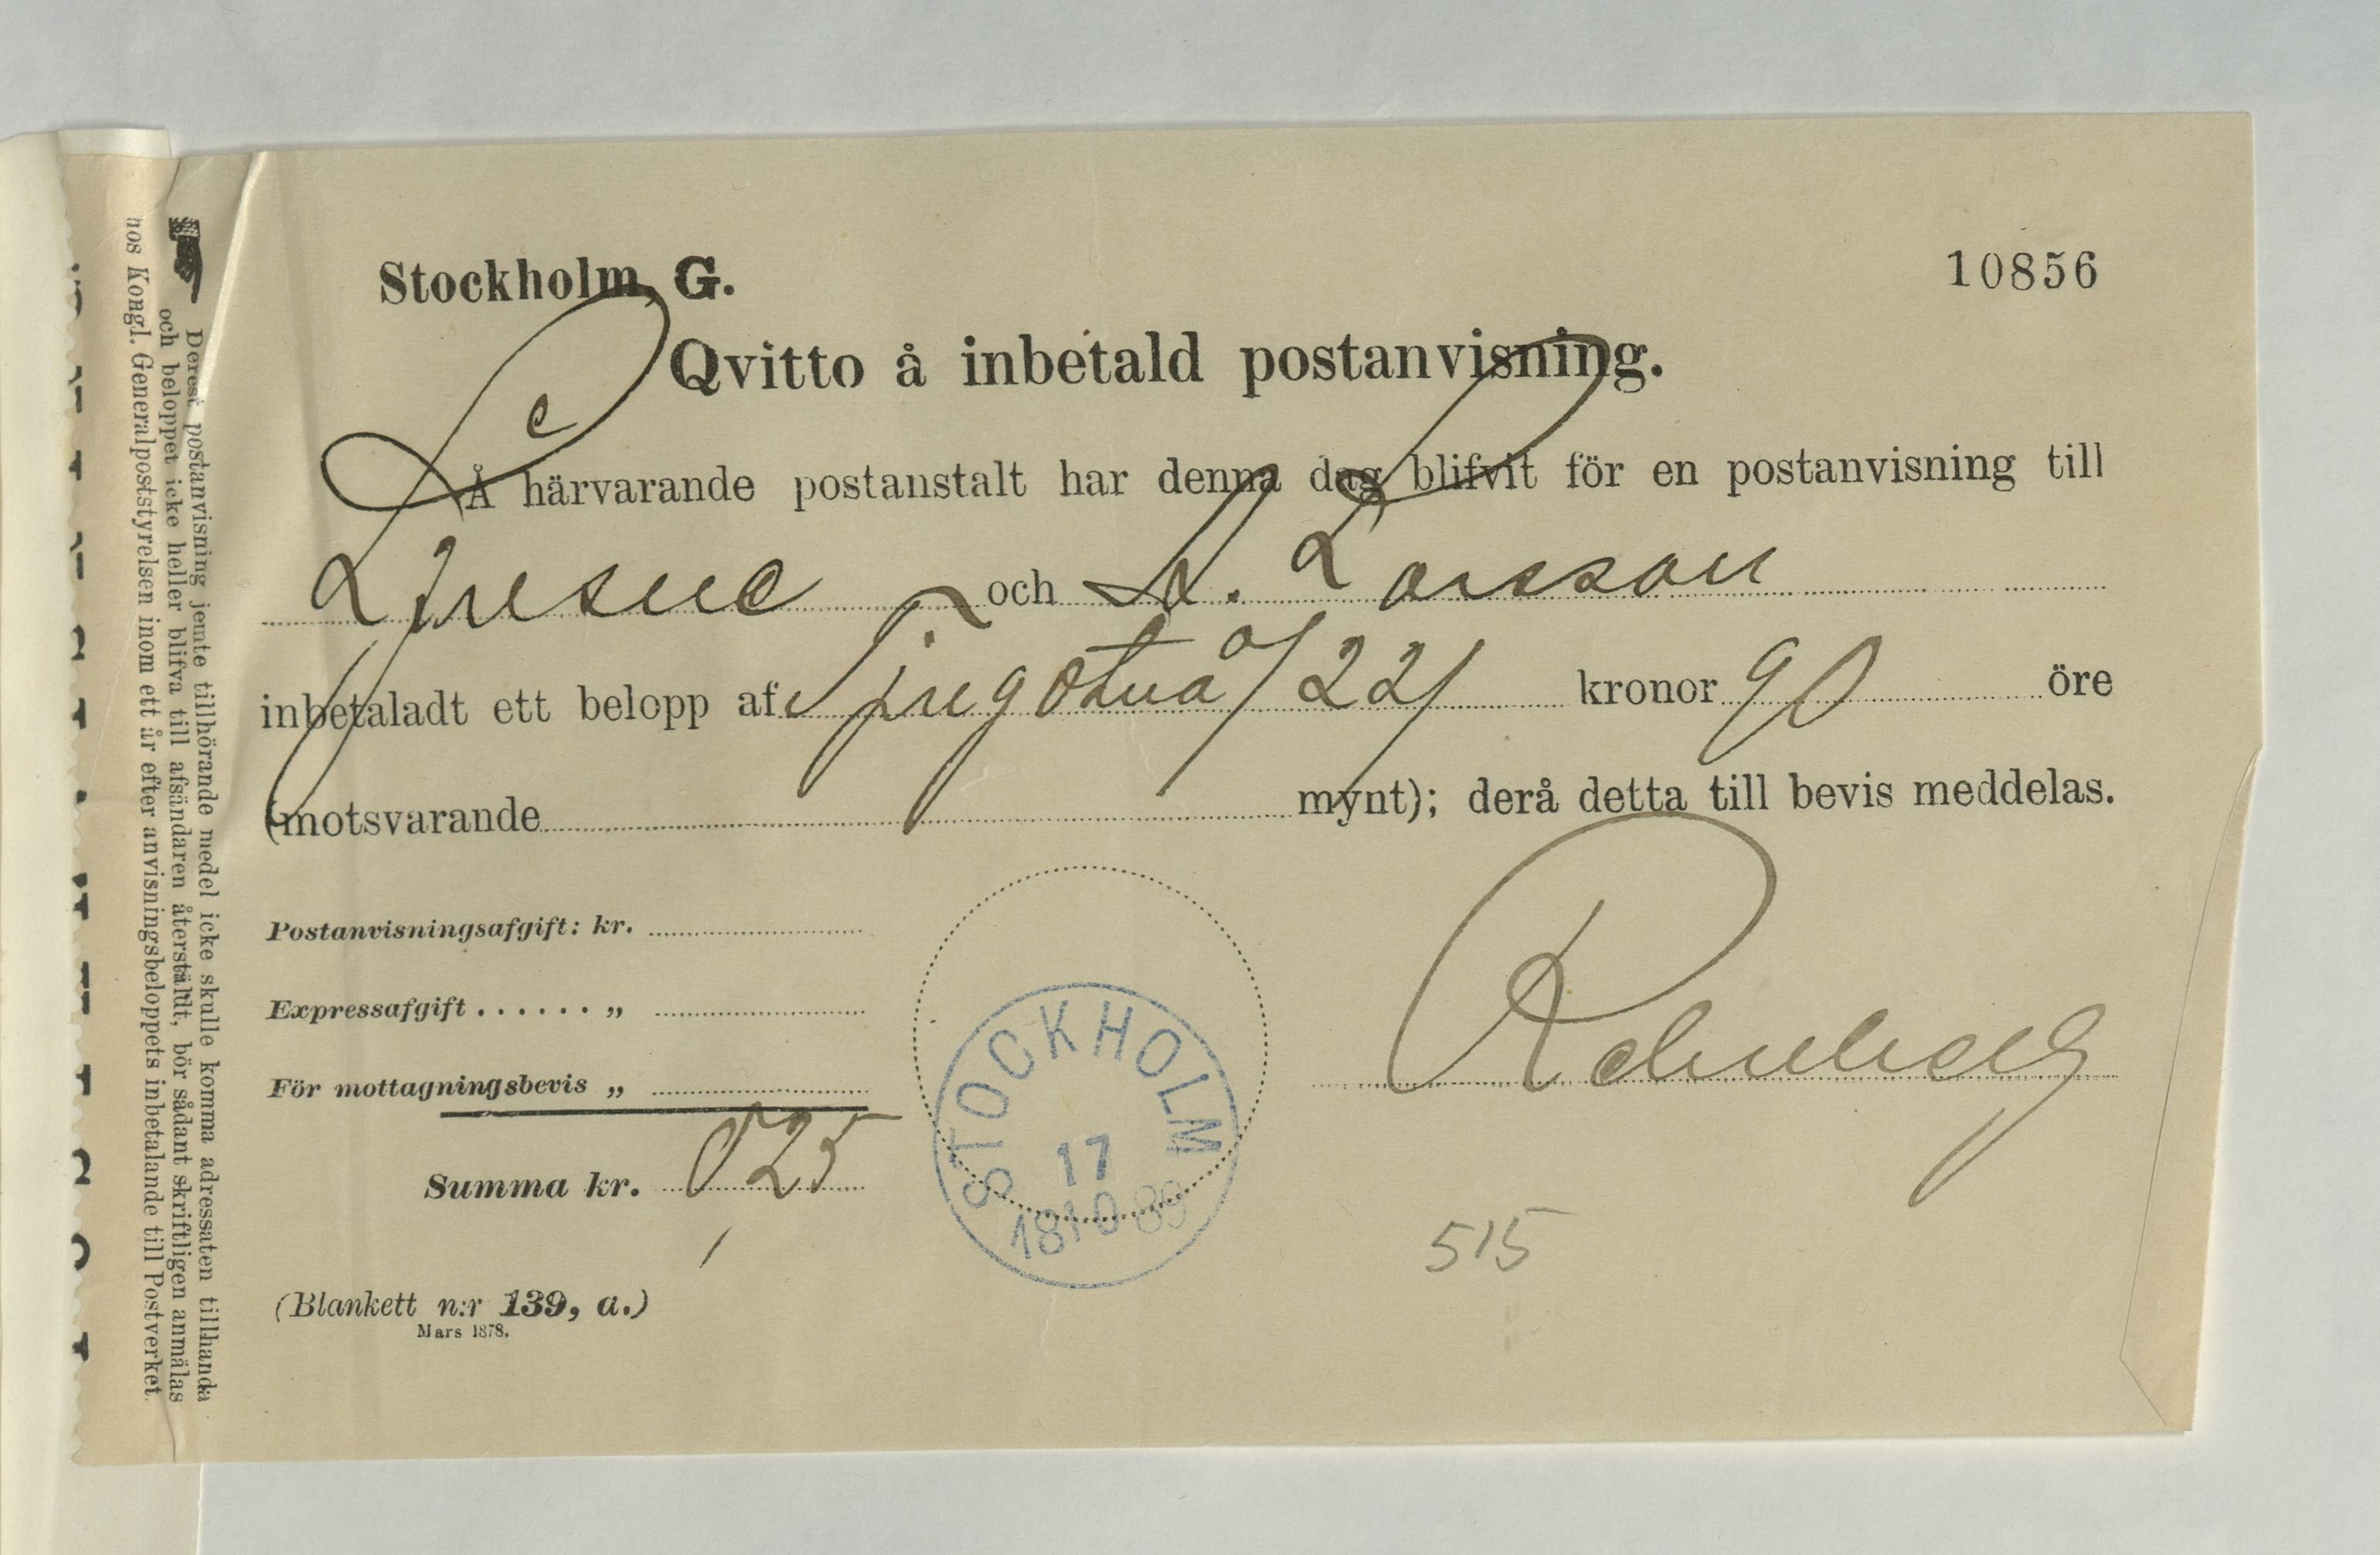 Stockholm, G.
10856
Qvitto å inbetald postanvisning.
Å härvarande postanstalt har denna dag blifvit för en postanvisning till
Ljusne och A. Larsson
inbetaladt ett belopp af Tjugotvå /22/ kronor 90 öre
(motsvarande mynt); derå detta till bevis meddelas.
Postanvisningsafgift: kr.
Expressafgift . . . . . . „
För mottagningsbevis „
Summa kr. 025
STOCKHOLM
17
18 10 89
515
(Blankett n:r 139, a.)
Mars 1878.
Derest postanvisning jemte tillhörande medel icke skulle komma adressaten tillhanda
och beloppet icke heller blifva till afsändaren återstäldt, bör sådant skriftligen anmälas
hos Kongl. Generalpoststyrelsen inom ett år efter anvisningsbeloppets inbetalande till Postverket.